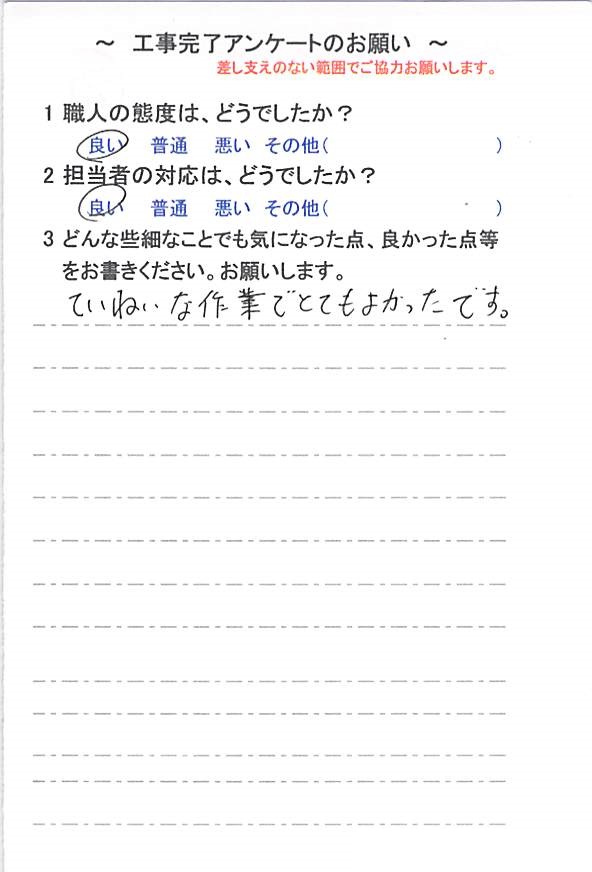 ～ 工事完了アンケートのお願い ～
差し支えのない範囲でご協力お願いします。
1 職人の態度は、どうでしたか？
良い 普通 悪い その他( )
2 担当者の対応は、どうでしたか？
良い 普通 悪い その他( )
3 どんな些細なことでも気になった点、良かった点等
をお書きください。お願いします。
ていねいな作業でとてもよかったです。